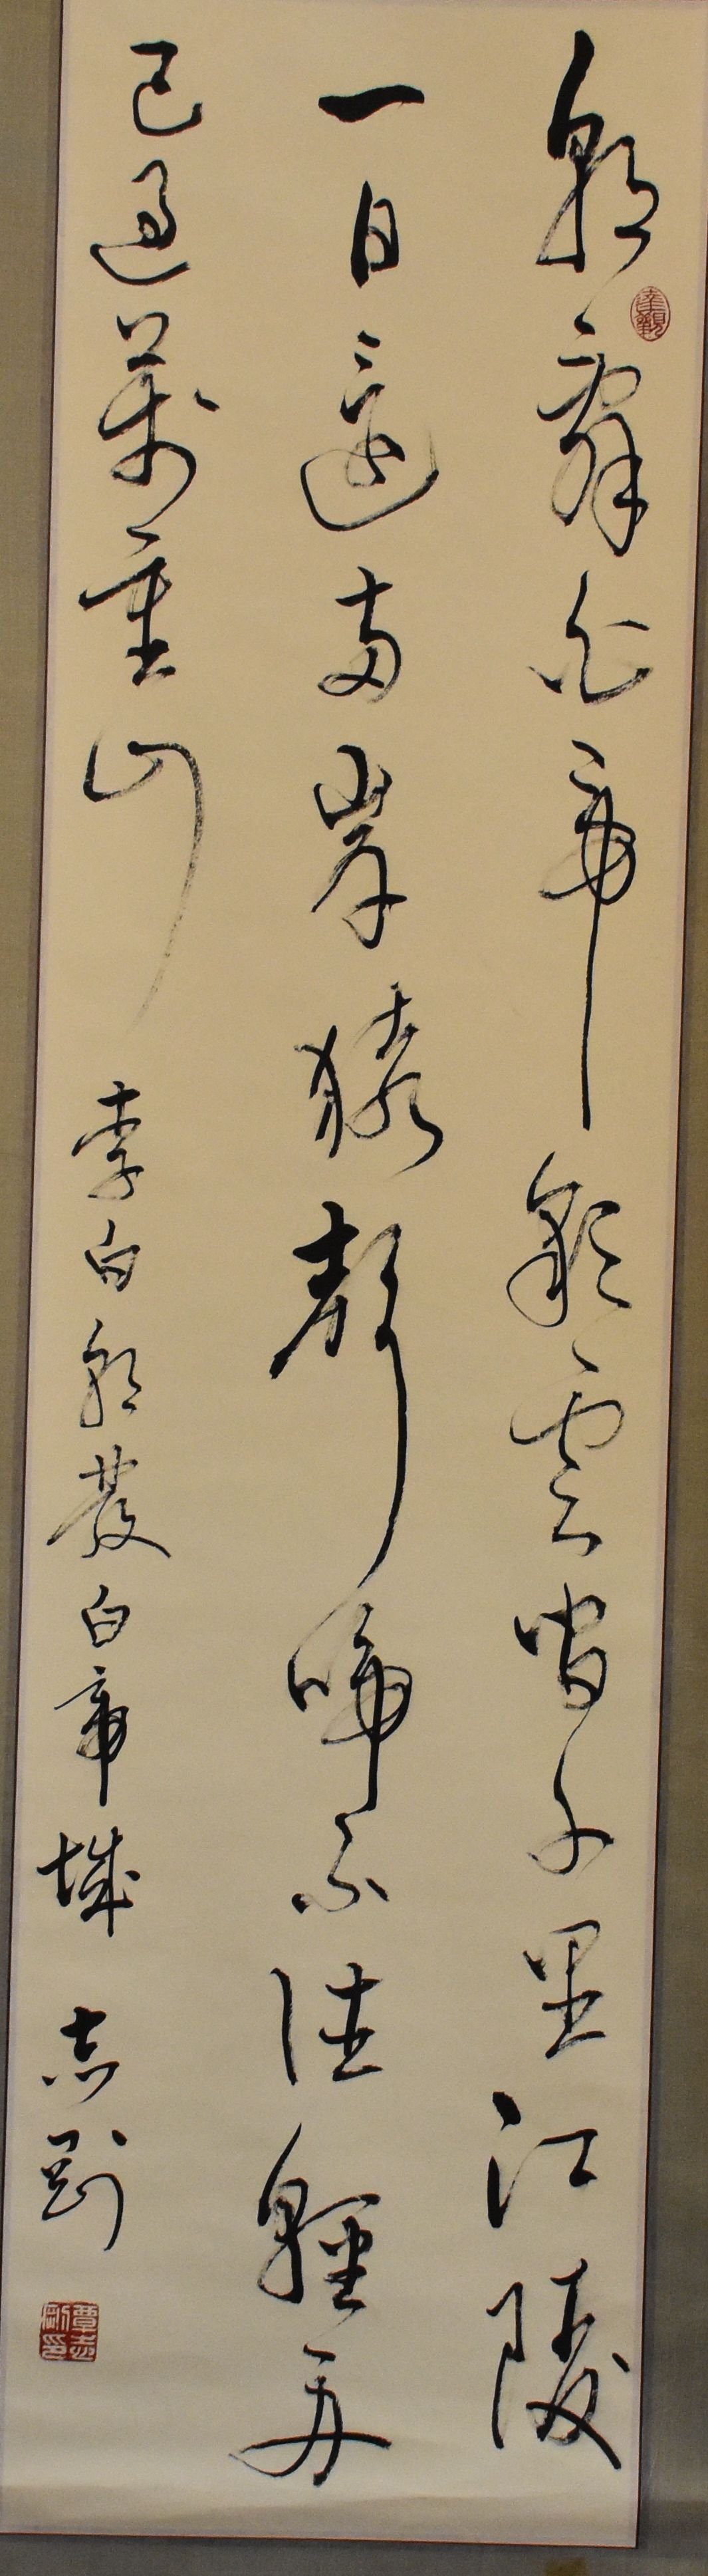 達觀
朝辭白帝彩雲間千里江陵
一日還兩岸猿聲啼不住輕舟
已過萬重山 李白朝發白帝城 志剛
覃志剛印